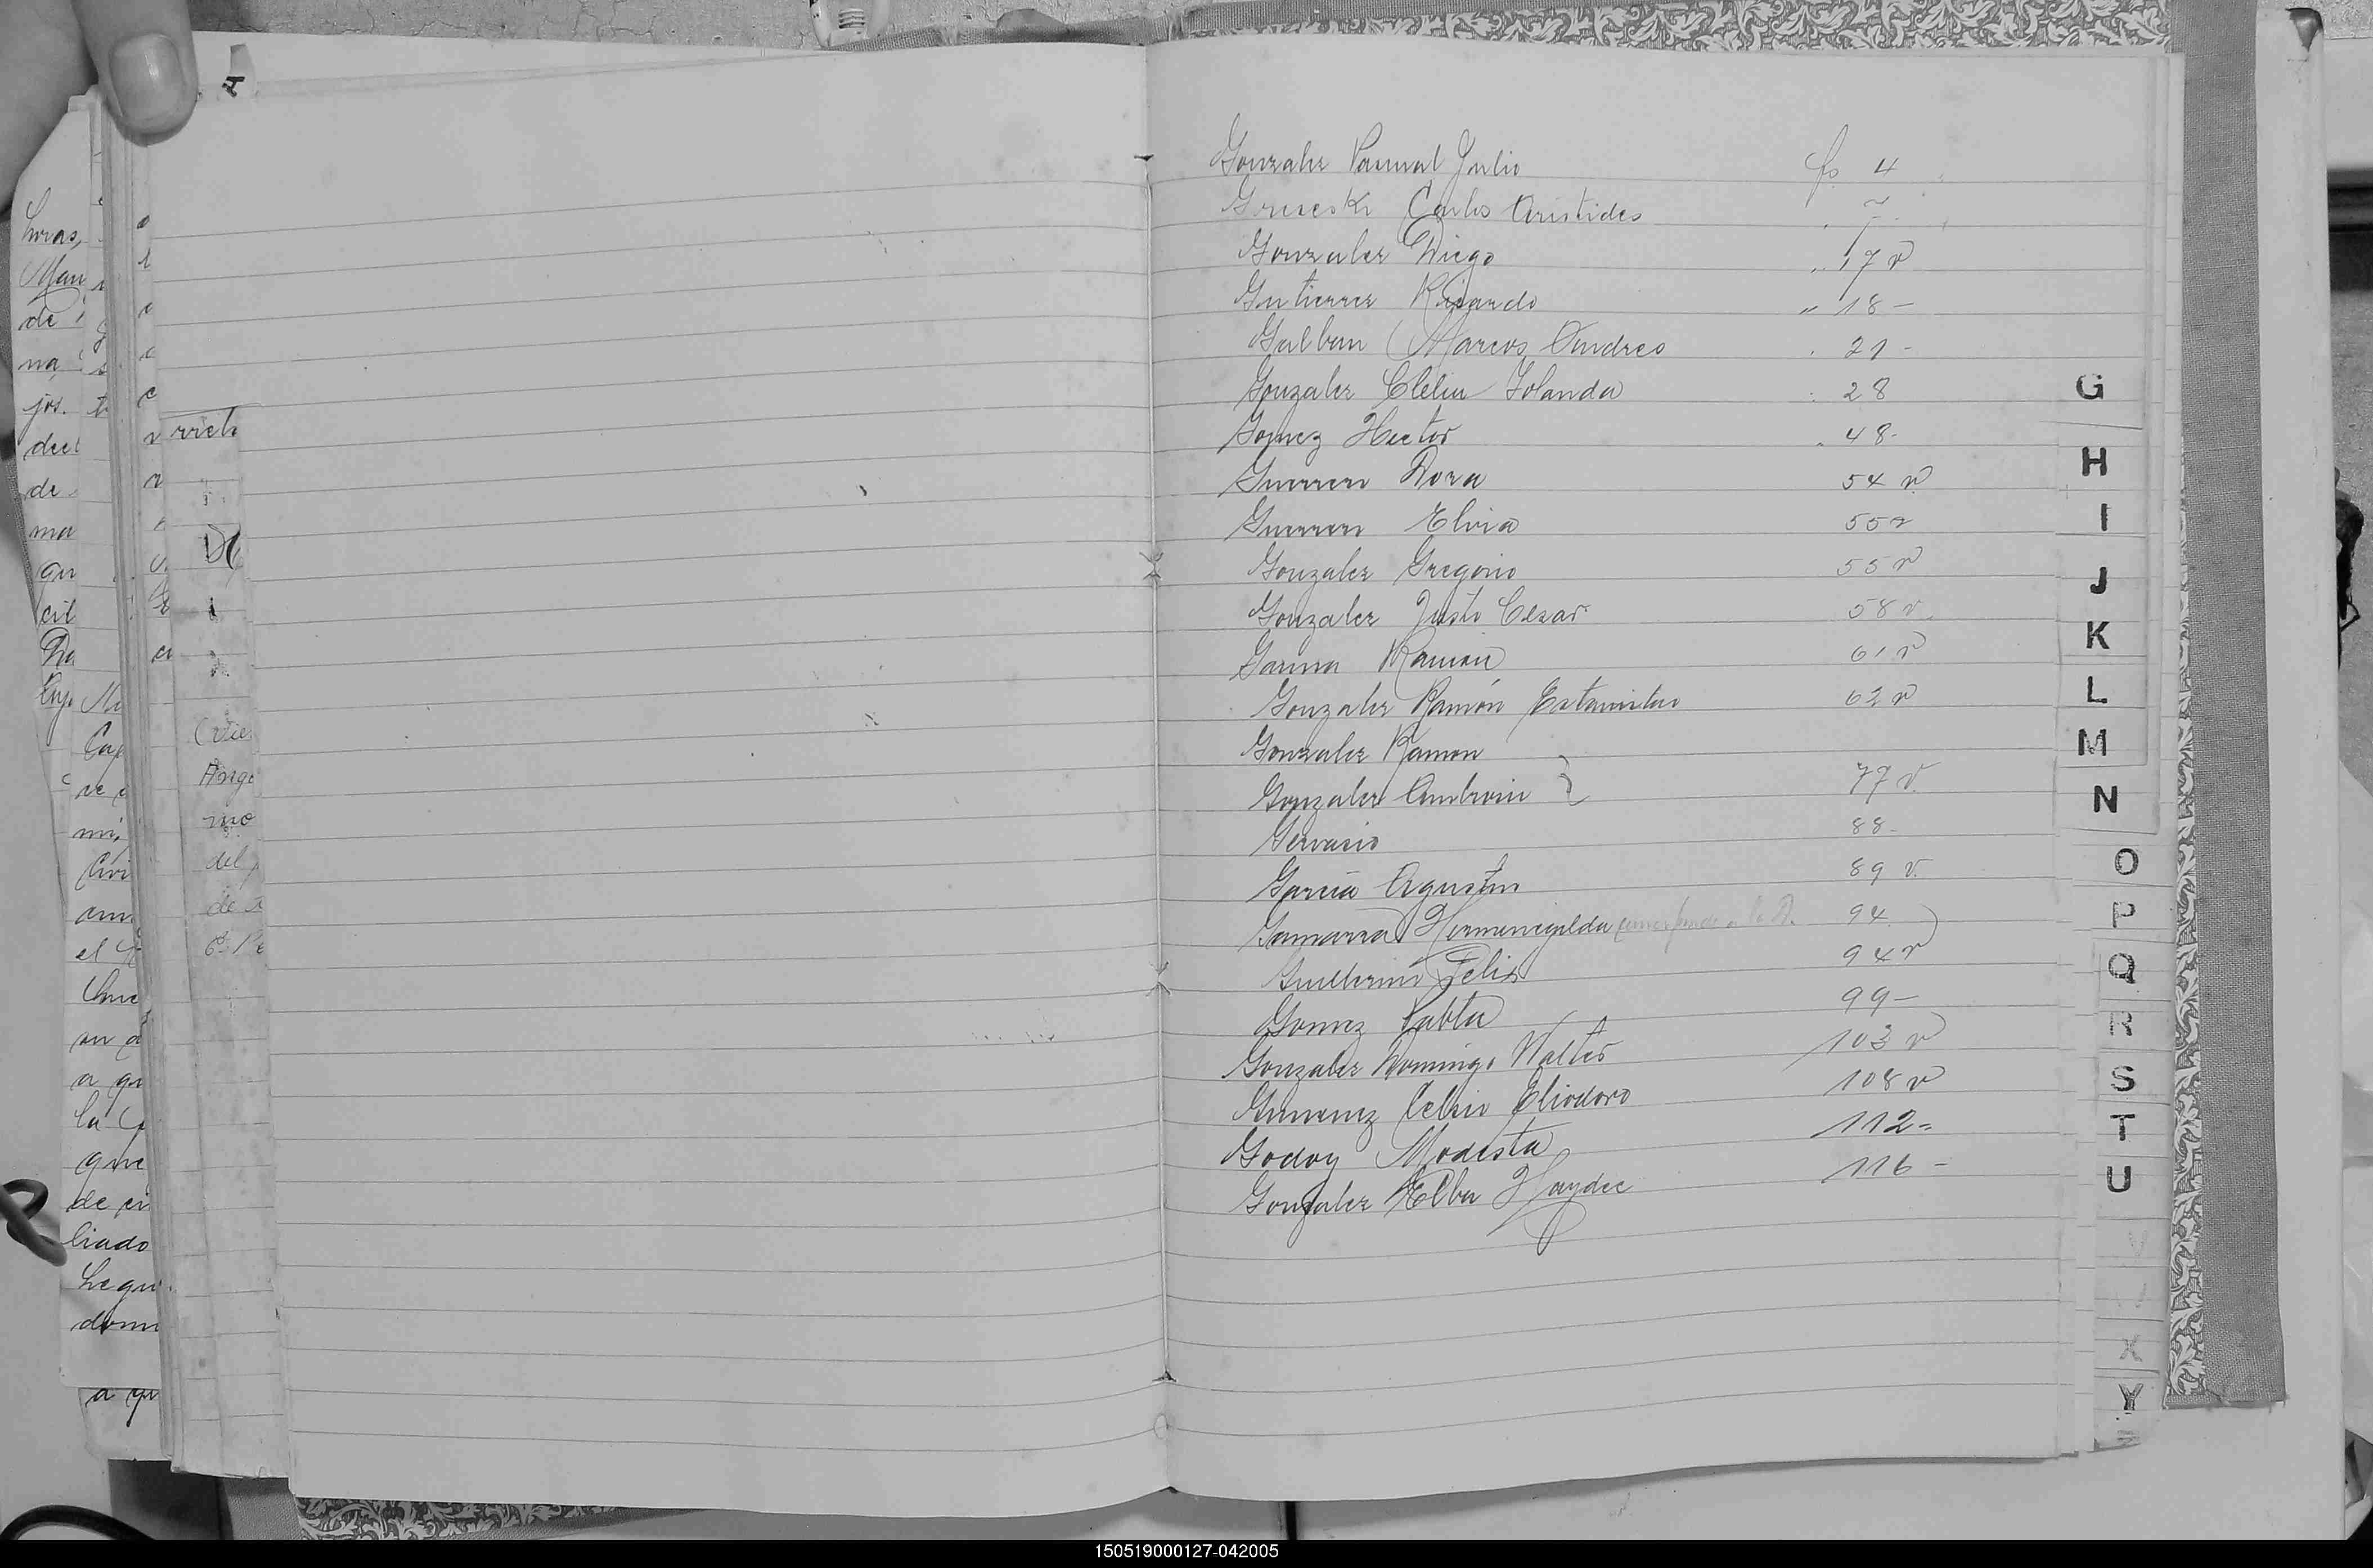 Gonzalez Pascual Julio fs 4
Carlos Aristides 7
Gonzalez Diego " 17 v
Gutierrez Ricardo " 18 -
Galban Marcos Andres 21 -
Gonzalez Clelia Yolanda 28
Gomez Hector 48 -
Guerrero Dora 54 v
Guerrero Elvia 55 v
Gonzalez Gregorio 55 v
Gonzalez Justo Cesar 58 v
Ramón 61 v
Gonzalez Ramón Estanislao 62 v
Gonzalez Ramon
Gonzalez Ambrosio } 77 v.
Gervasio 88 -
García Agustin 89 v.
Gamarra Hermenegilda 94
Guillermo Felix 94 v
Gomez Pabla 99 -
Gonzalez Domingo Walter 103 v
Gimenez Celsio Eliodoro 108 v
Godoy Modesta 112 =
Gonzalez Elba Haydee 116 -
G
H
I
J
K
L
M
N
O
P
Q
R
S
T
U
V
X
Y
Z
150519000127-042005